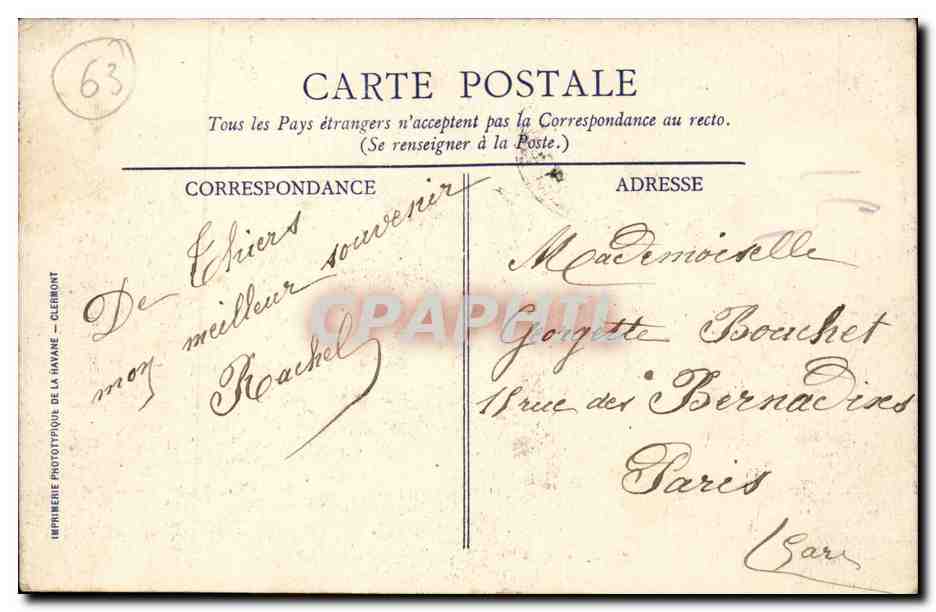 63
CARTE POSTALE
Tous les Pays étrangers n'acceptent pas la Correspondance au recto.
(Se renseigner à la Poste.)
CORRESPONDANCE
De Thiers
mon meilleur souvenir
Rachel
ADRESSE
Mademoiselle
Georgette Bouchet
rue des Bernadixes
Paris
IMPRIMERIE PHOTOTYPIQUE DE LA HAVANE — CLERMONT
CPAPHIL